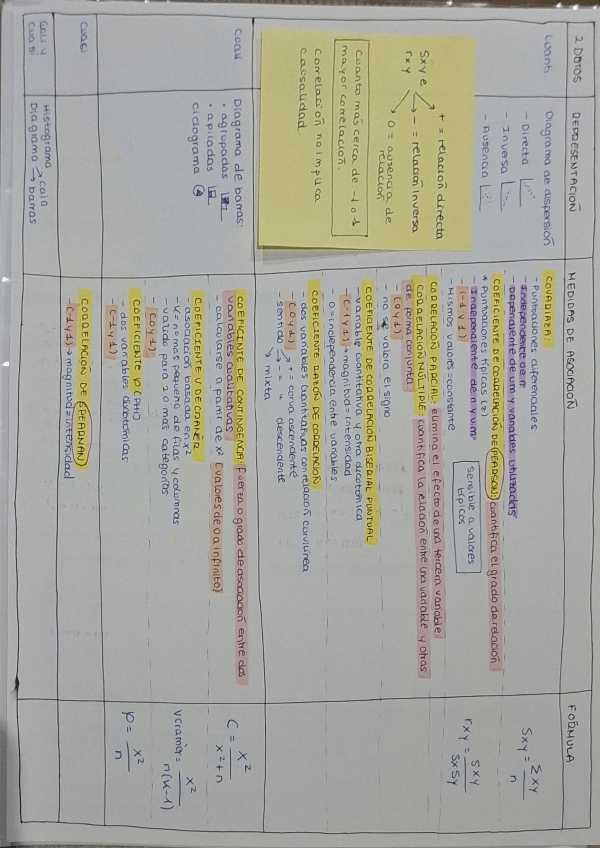 2 DATOS
REPRESENTACIÓN
MEDIDAS DE ASOCIACIÓN
FÓRMULA
Cuanti
Diagrama de dispersión
- Directa
- Inversa
- Ausencia
Sxy e
rxy
+ = relación directa
- = relación inversa
0 = ausencia de
relación
cuanto más cerca de -1 o 1
mayor correlación.
Correlación no implica
causalidad
COVARIAZA:
- Puntuaciones diferenciales
- Independiente de n
- Dependiente de um y variables utilizadas
COEFICIENTE DE CORRELACIÓN DE PEARSON: cuantifica el grado de relación
* Puntuaciones típicas (z)
- Independiente de n y um
- (-1 y 1)
- Mismos valores = constante
sensible a valores
típicos
CORRELACIÓN PARCIAL: elimina el efecto de una tercera variable
CORRELACIÓN MÚLTIPLE: cuantifica la relación entre una variable y otras
de forma conjunta
- (0 y 1)
- no valora el signo
COEFICIENTE DE CORRELACIÓN BISERIAL PUNTUAL
- variable cuantitativa y otra dicotómica
- (-1 y 1) → magnitud = intensidad
- 0 = independencia entre variables
COEFICIENTE RAZÓN DE CORRELACIÓN
- dos variables cuantitativas con relación curvilínea
- (0 y 1)
sentido
+ = curva ascendente
- = " descendente
mixta
Sxy = Σxy / n
rxy = Sxy / SxSy
Cuali
Diagrama de barras:
• agrupadas
• apiladas
Ciclograma
COEFICIENTE DE CONTINGENCIA: fuerza o grado de asociación entre dos
variables cualitativas
- calcularse a partir de x² (valores de 0 a infinito)
COEFICIENTE V DE CRAMER
- asociación basada en x²
- K = nº más pequeño de filas y columnas
- valido para 2 o más categorías
- (0 y 1)
COEFICIENTE φ (PHI)
- dos variables dicotómicas
- (-1 y 1)
C = x² / x² + n
Vcramer = x² / n(K-1)
φ = x² / n
Cuasi
CORRELACIÓN DE SPEARMAN
- (-1 y 1) → magnitud = intensidad
Cuali y
cuasi
Histograma
Diagrama
caja
barras